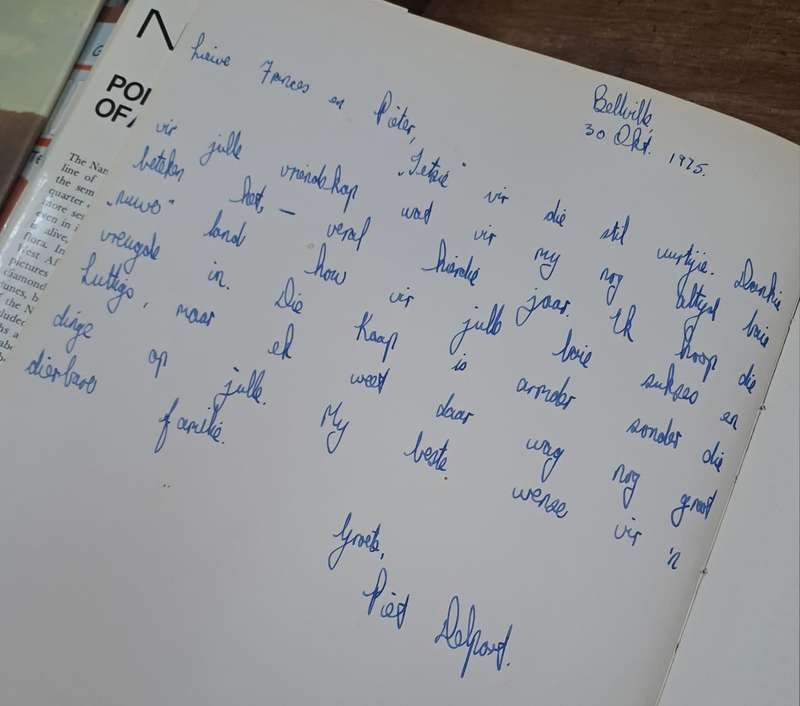 N
POR
OF A
The Nam
line of
the sem
quarter
even in i
alive,
flora. In
West Af
pictures
diamond
Bellville,
30 Okt. 1975.
Liewe Frances en Pieter,
„Ietsie" vir die stil uurtjie. Dankie
vir julle vriendskap wat vir my nog altyd baie
beteken het, — veral hierdie jaar. Ek hoop die
„nuwe" land hou vir julle baie sukses en
vreugde in. Die Kaap is armer sonder die
Luttigs, maar ek weet daar wag nog groot
dinge op julle. My beste wense vir 'n
dierbare familie.
Groete,
Piet Delport.